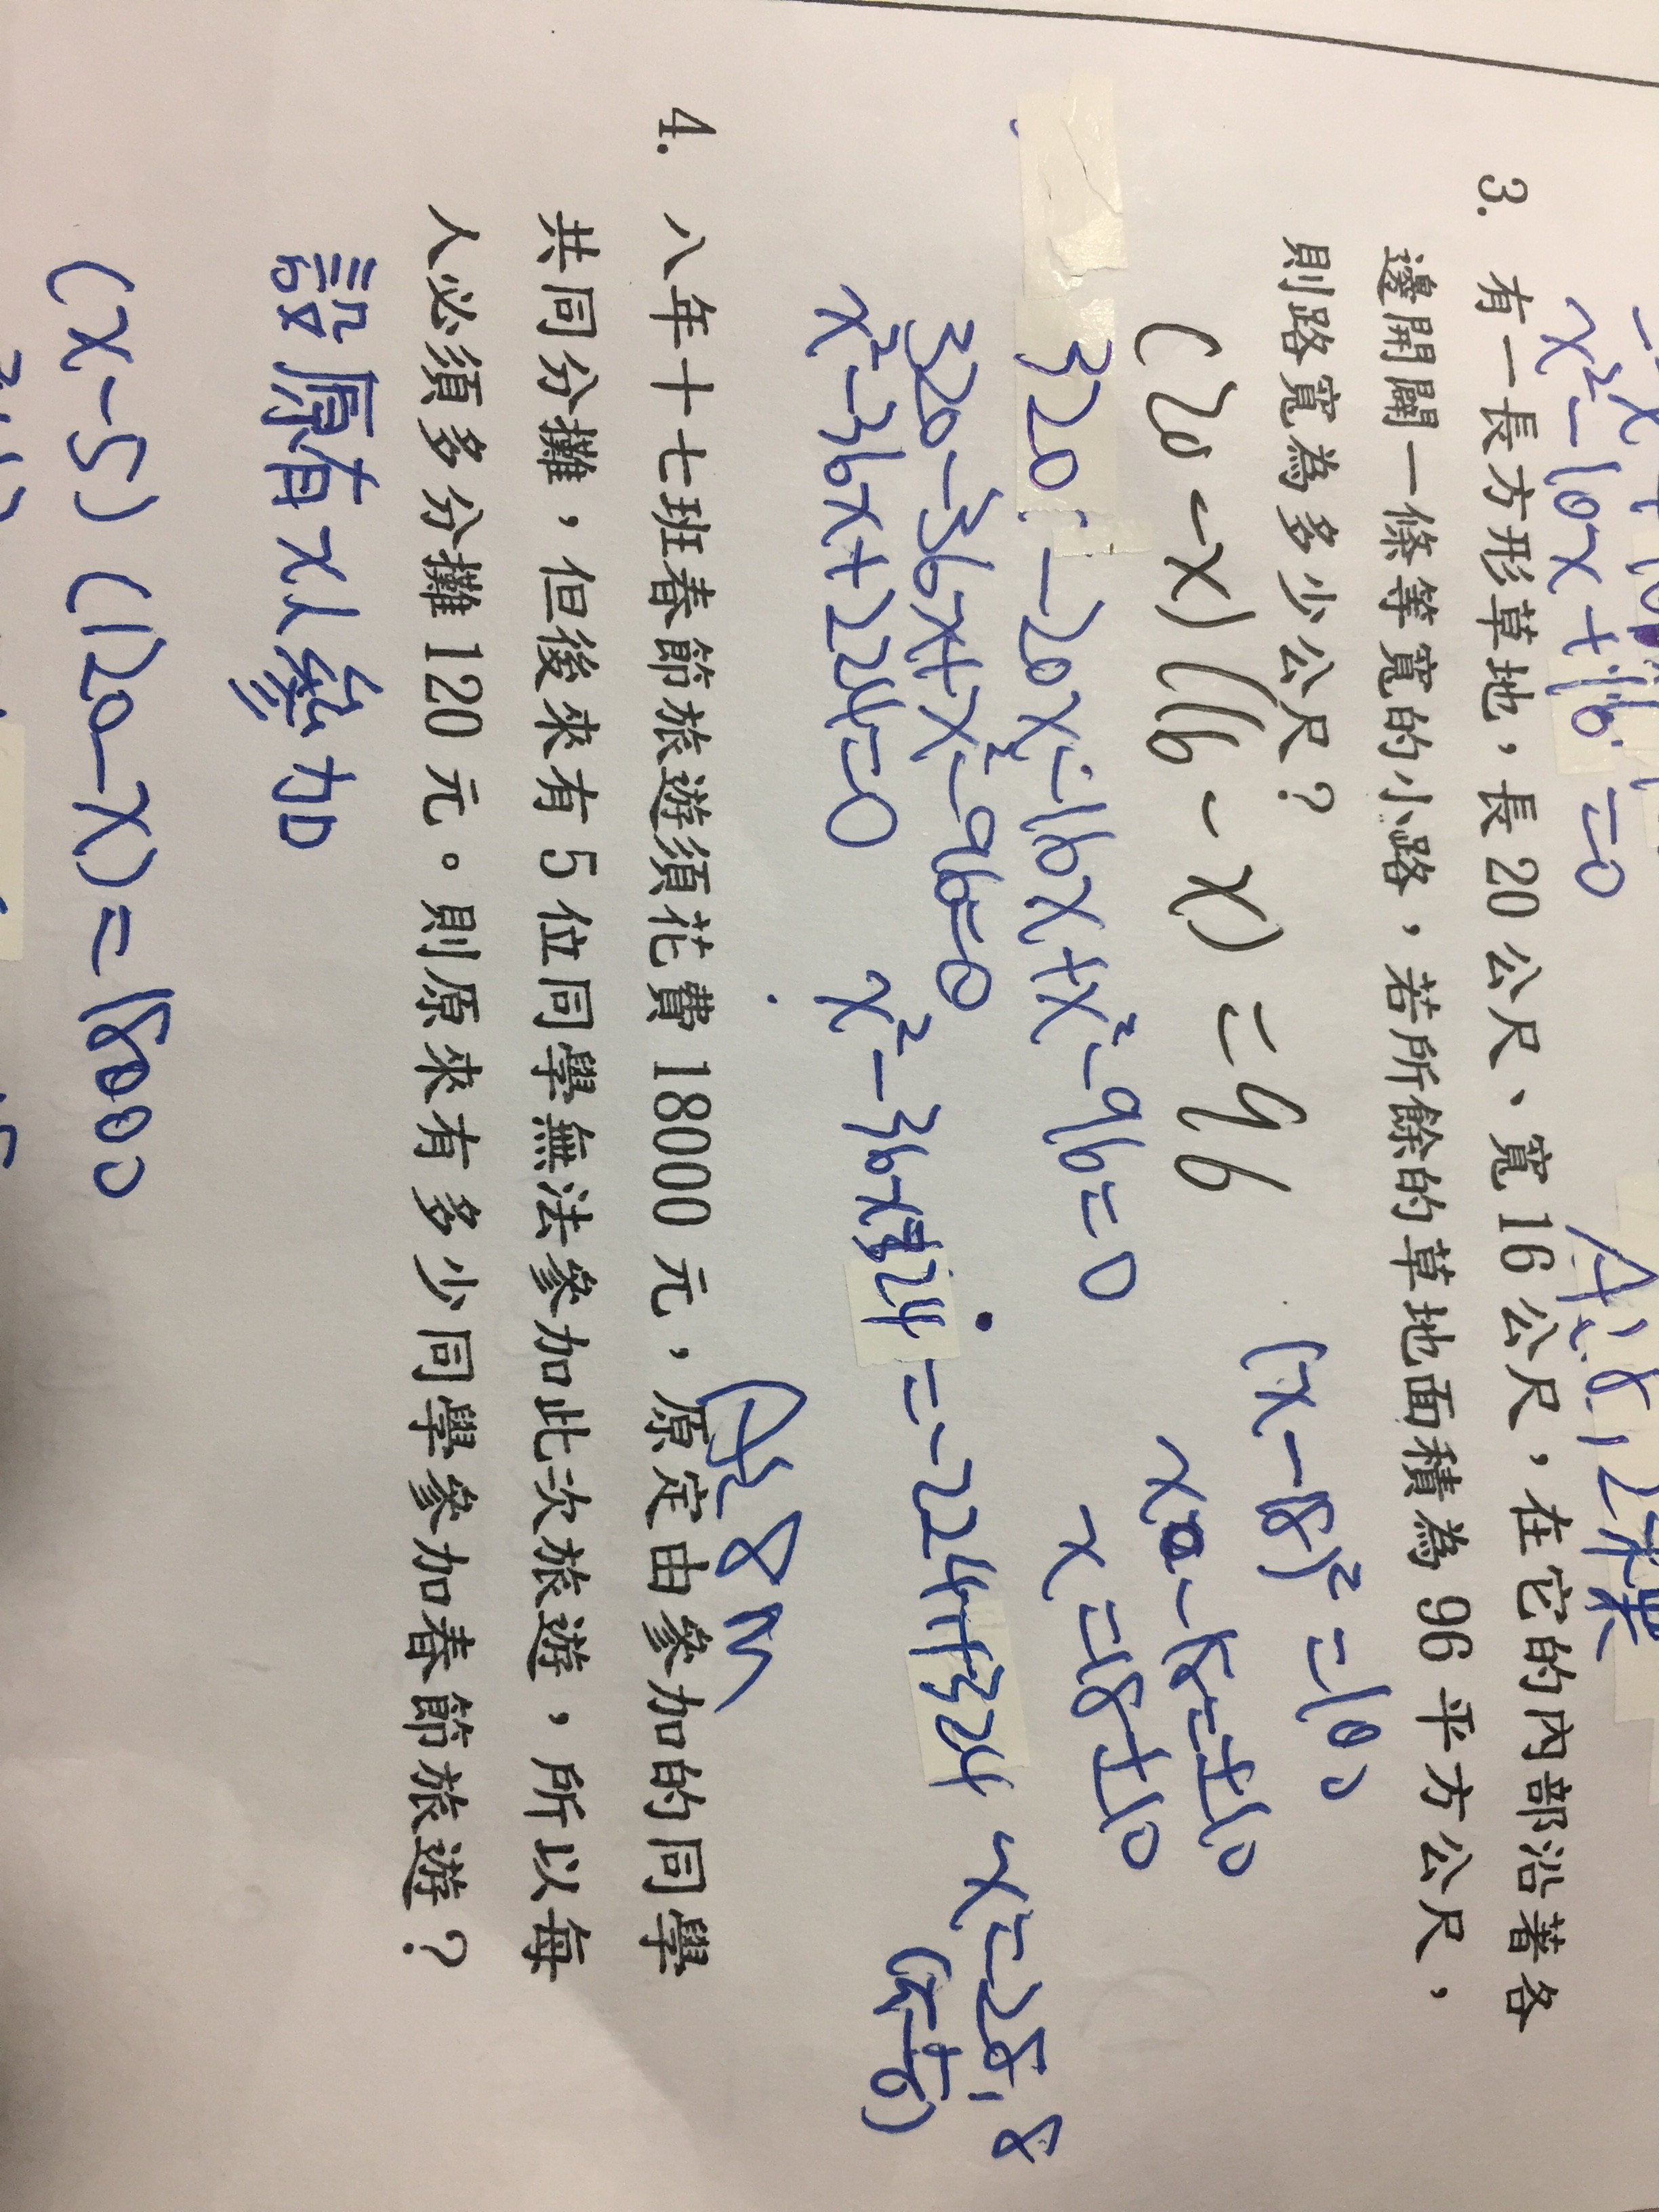 x²-10x+16=0
3. 有一長方形草地，長 20 公尺、寬 16 公尺，在它的內部沿著各
邊開闢一條等寬的小路，若所餘的草地面積為 96 平方公尺，
則路寬為多少公尺？
(20-x)(16-x)=96
(x-18)²=100
x-18=±10
320-20x-16x+x²-96=0
x=18±10
320-36x+x²-96=0
x=28,8
(不合)
x²-36x+224=0
x²-36x+324=-224+324
A:8m
4. 八年十七班春節旅遊須花費 18000 元，原定由參加的同學
共同分攤，但後來有 5 位同學無法參加此次旅遊，所以每
人必須多分攤 120 元。則原來有多少同學參加春節旅遊？
設原有x人參加
(x-5)(120-x)=18000